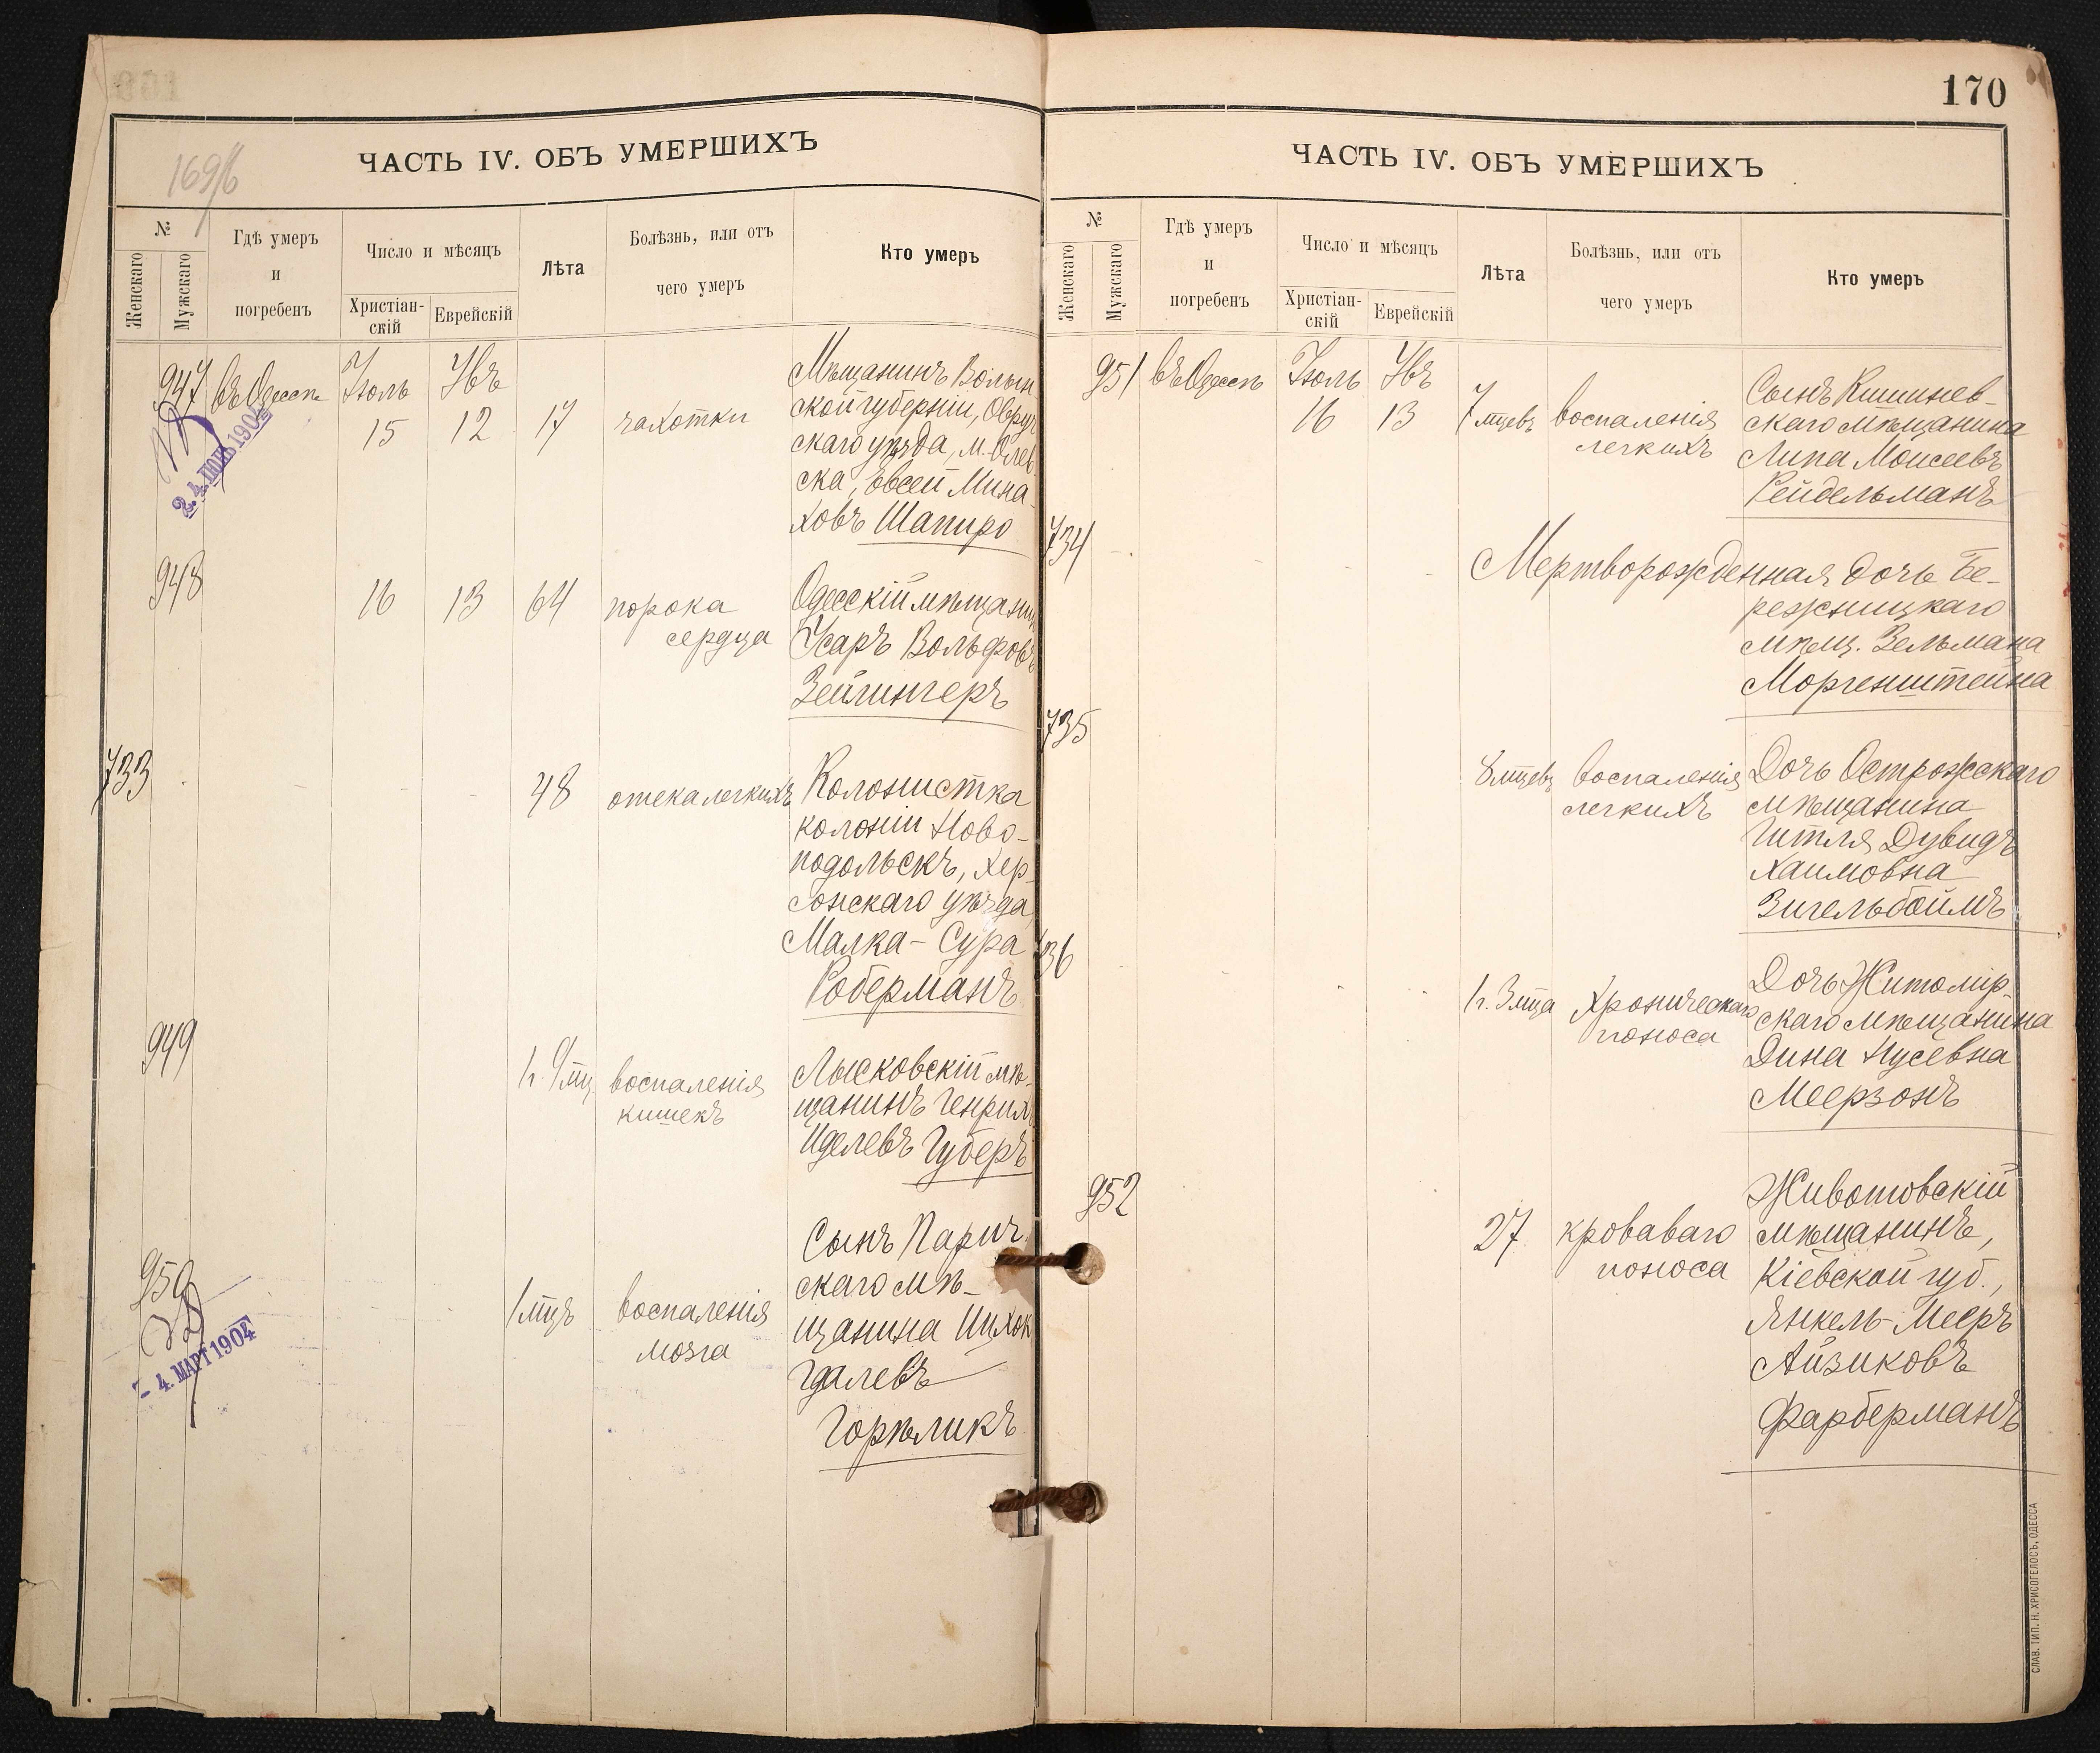 169б
ЧАСТЬ IV. ОБЪ УМЕРШИХЪ
№
Женскаго
Мужскаго
Гдѣ умеръ
и
погребенъ
Число и мѣсяцъ
Христіан-
скій
Еврейскій
Лѣта
Болѣзнь, или отъ
чего умеръ
Кто умеръ
947 въ Одессѣ Іюль 15 Увъ 12 17 чахотки
Мѣщанинъ Волын
ской губерніи, Овруч
скаго уѣзда, м. Олев
ска, Евсей Мина
ховъ Шапиро
24. ІЮН. 1904
948 16 13 64 порока
сердца
Одесскій мѣщанин
Усаръ Вольфовъ
Зейлингеръ
733 48 отека легкихъ
Колонистка
колоніи Ново-
подольскъ, Хер-
сонскаго уѣзда,
Малка-Сура
Роберманъ
949 1 г. 9 мц. воспаленія
кишекъ
Лысковскій мѣ-
щанинъ Генрих
Иделевъ Губеръ
950 1 мцъ воспаленія
мозга
Сынъ Парич
скаго мѣ-
щанина Ицхок
Гдалевъ
Горѣликъ
- 4. МАРТ 1904
170
ЧАСТЬ IV. ОБЪ УМЕРШИХЪ
№
Женскаго
Мужскаго
Гдѣ умеръ
и
погребенъ
Число и мѣсяцъ
Христіан-
скій
Еврейскій
Лѣта
Болѣзнь, или отъ
чего умеръ
Кто умеръ
951 въ Одессѣ Іюль 16 Увъ 13 7 мцевъ воспаленія
легкихъ
Сынъ Кишинев-
скаго мѣщанина
Липа Моисеевъ
Рейдельманъ
734
Мертворожденная дочь Бе-
режницкаго
мѣщ. Зельмана
Моргенштейна
735 8 мцевъ воспаленія
легкихъ
Дочь Острожскаго
мѣщанина
Гитля Дувидъ
Хаимовна
Зигельбоймъ
736 1 г. 3 мца хроническаго
поноса
Дочь Житомір-
скаго мѣщанина
Дина Нусевна
Меерзонъ
952 27 кроваваго
поноса
Животовскій
мѣщанинъ,
Кіевской губ.,
Янкель-Мееръ
Айзиковъ
Фарберманъ
СЛАВ. ТИП. Н. ХРИСОГЕЛОСЪ, ОДЕССА